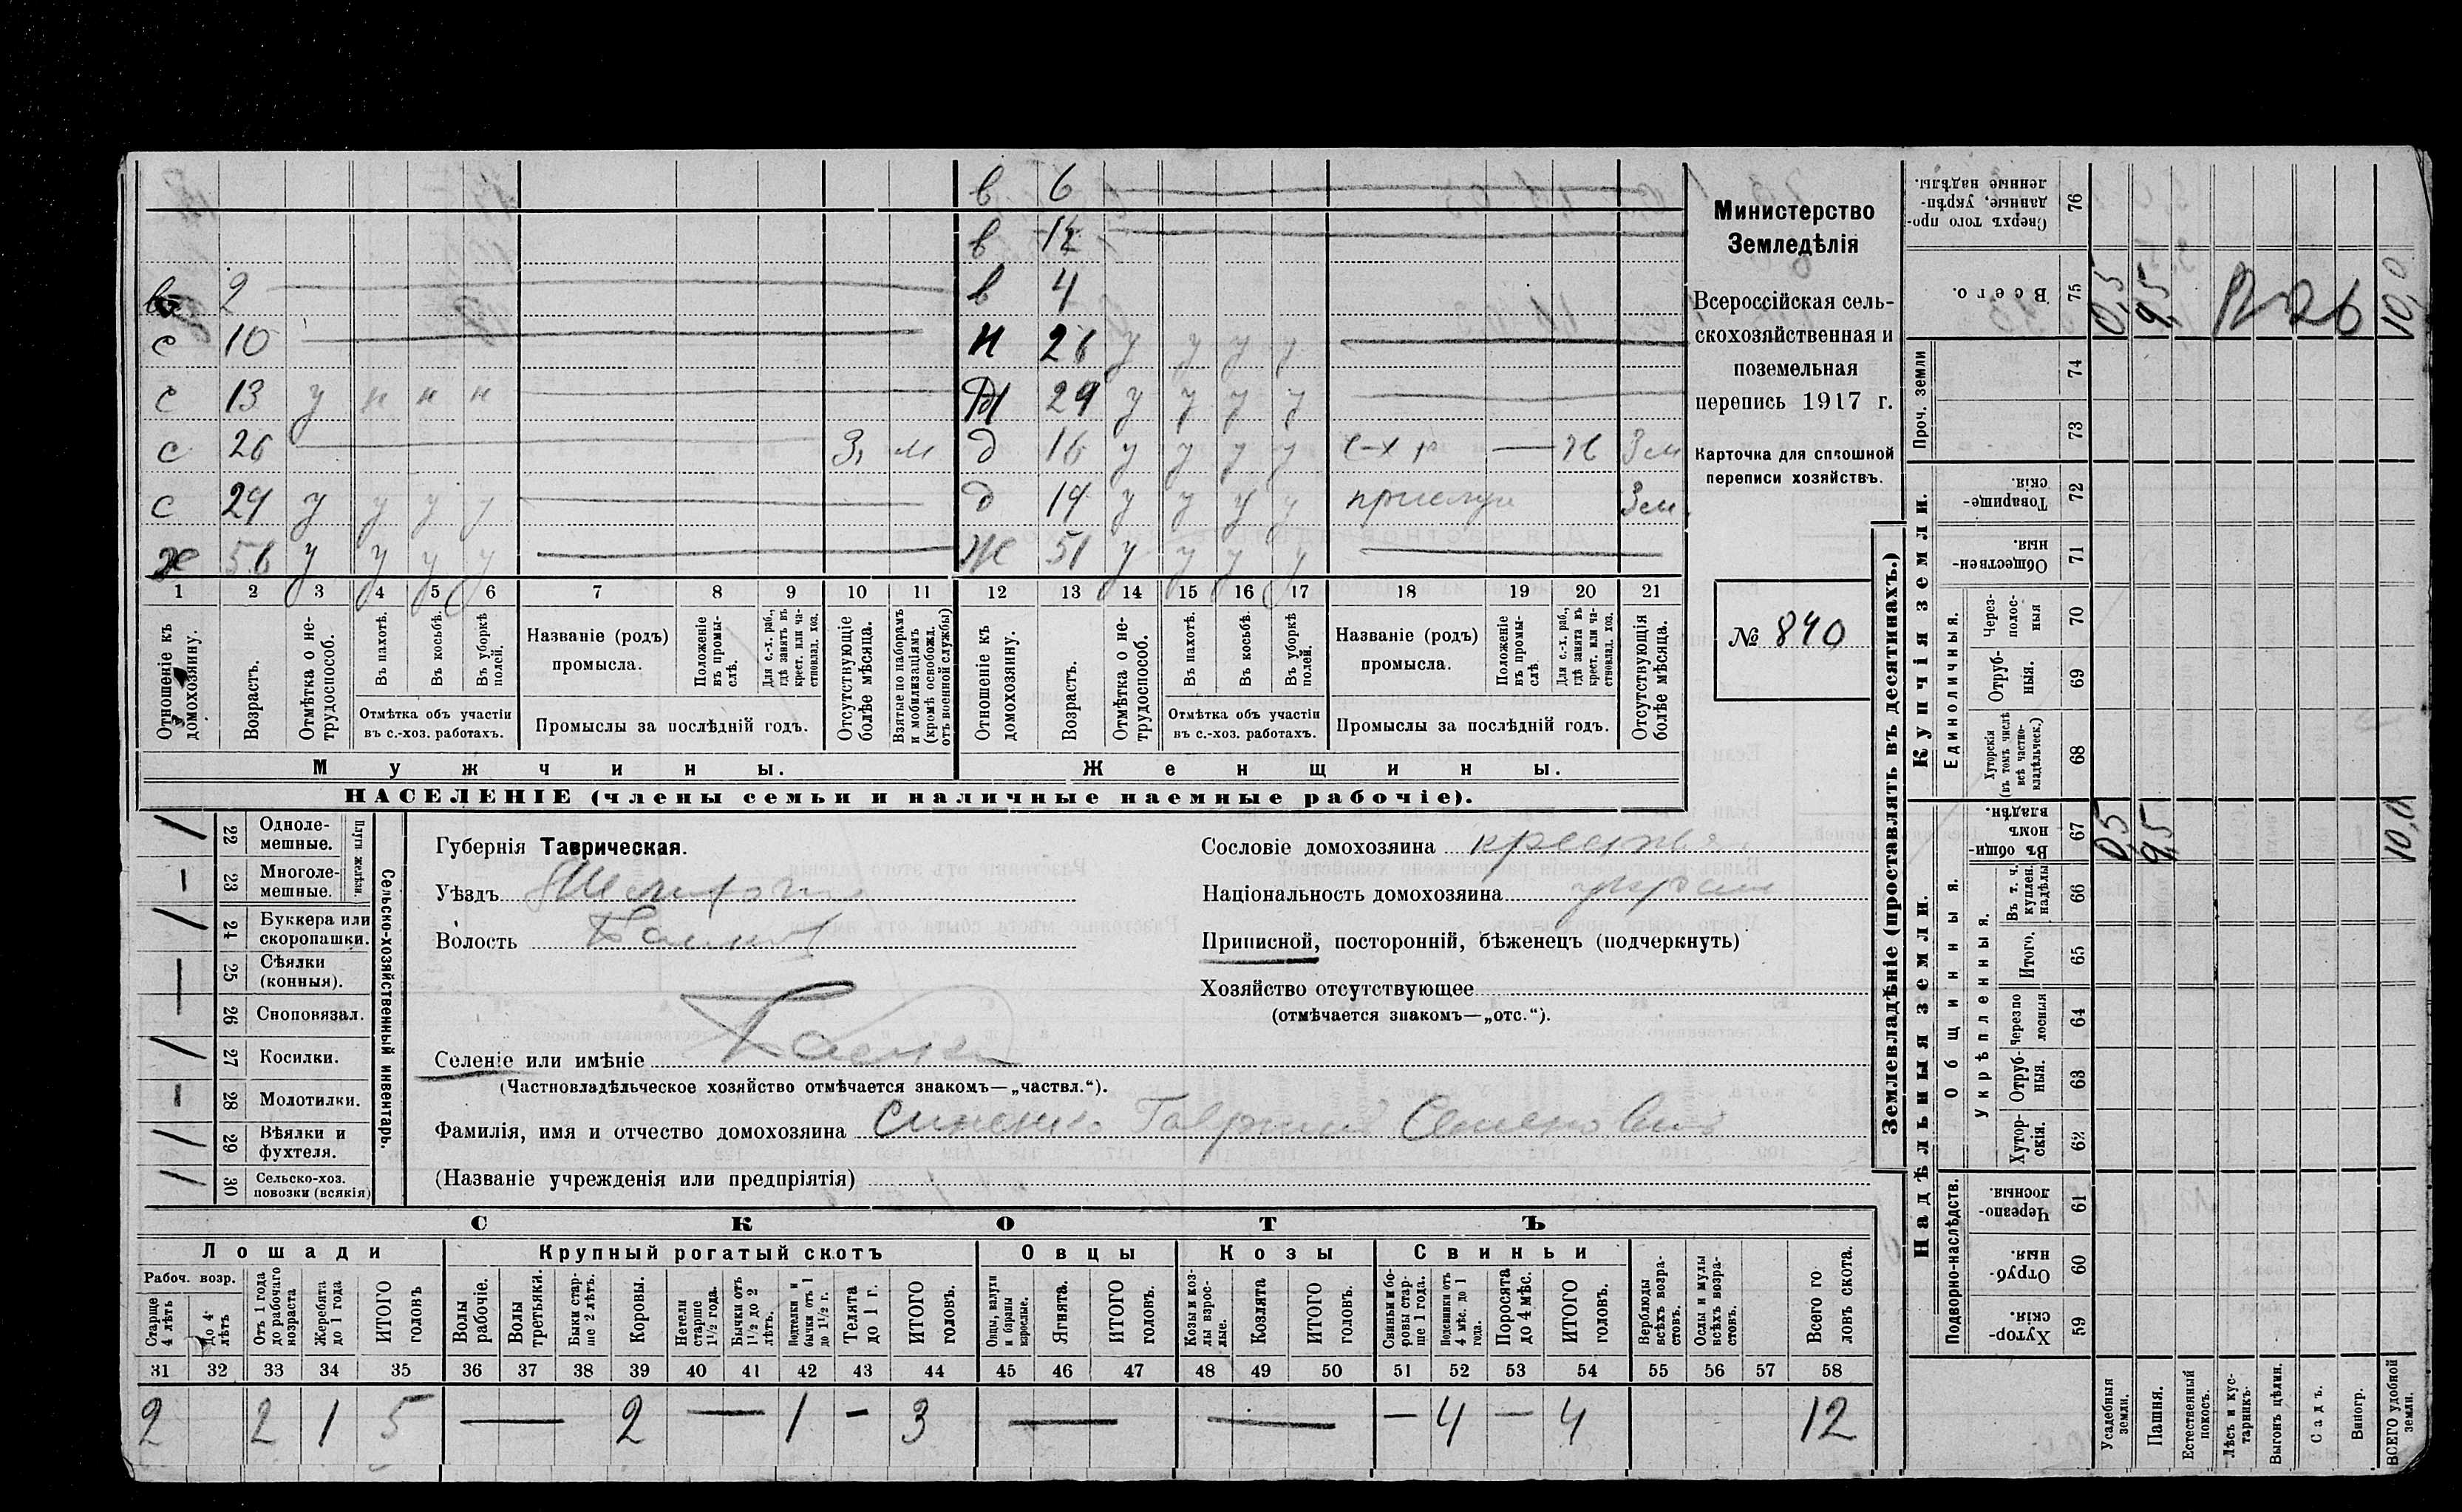 в 6
в 12
в 2 в 4
с 10 н 26 у у у у
с 13 у н н н 29 у у у у
с 26 З. м д 16 у у у у с-х р — Зем
с 29 у у у у д 19 у у у у прислуг Зем.
х 56 у у у у Ж 51 у у у у
1 2 3 4 5 6 7 8 9 10 11 12 13 14 15 16 17 18 19 20 21
Отношеніе къ домохозяину.
Возрастъ.
Отмѣтка о не-трудоспособ.
Въ пахотѣ.
Въ косьбѣ.
Въ уборкѣ полей.
Отмѣтка объ участіи въ с.-хоз. работахъ.
Названіе (родъ) промысла.
Положеніе въ промы-слѣ.
Для с.-х. раб., гдѣ занятъ въ крест. или ча-стновлад. хоз.
Промыслы за послѣдній годъ.
Отсутствующіе болѣе мѣсяца.
Взятые по наборамъ и мобилизаціямъ (кромѣ освобожд. отъ военной службы)
Отношеніе къ домохозяину.
Возрастъ.
Отмѣтка о не-трудоспособ.
Въ пахотѣ.
Въ косьбѣ.
Въ уборкѣ полей.
Отмѣтка объ участіи въ с.-хоз. работахъ.
Названіе (родъ) промысла.
Положеніе въ промы-слѣ.
Для с.-х. раб., гдѣ занята въ крест. или ча-стновлад. хоз.
Промыслы за послѣдній годъ.
Отсутствующія болѣе мѣсяца.
Мужчины. Женщины.
НАСЕЛЕНІЕ (члены семьи и наличные наемные рабочіе).
Министерство
Земледѣлія
Всероссійская сель-
скохозяйственная и
поземельная
перепись 1917 г.
Карточка для сплошной
переписи хозяйствъ.
№ 840
Сельско-хозяйственный инвентарь.
Плуги желѣзн.
/ 22 Одноле-мешные.
— 23 Многоле-мешные.
/ 24 Буккера или скоропашки.
— 25 Сѣялки (конныя).
26 Сноповязал.
/ 27 Косилки.
— 28 Молотилки.
/ 29 Вѣялки и фухтеля.
/ 30 Сельско-хоз. повозки (всякія)
Губернія Таврическая.
Уѣздъ
Волость
Селеніе или имѣніе
(Частновладѣльческое хозяйство отмѣчается знакомъ—„частвл.“).
Фамилія, имя и отчество домохозяина Синенко Гавриил Семенович
(Названіе учрежденія или предпріятія)
Сословіе домохозяина крестья.
Національность домохозяина украин
Приписной, посторонній, бѣженецъ (подчеркнуть)
Хозяйство отсутствующее
(отмѣчается знакомъ—„отс.“).
СКОТЪ
Лошади Крупный рогатый скотъ Овцы Козы Свиньи
Рабоч. возр.
Старше 4 лѣтъ
До 4 лѣтъ
Отъ 1 года до рабочаго возраста
Жеребята до 1 года
ИТОГО головъ
Волы рабочіе.
Волы третьяки.
Быки стар-ше 2 лѣтъ.
Коровы.
Нетели старше 1½ года.
Бычки отъ 1½ до 2 лѣтъ.
Подтелки и бычки отъ 1 до 1½ г.
Телята до 1 г.
ИТОГО головъ.
Овцы, валухи и бараны взрослые.
Ягнята.
ИТОГО головъ.
Козы и коз-лы взрос-лые.
Козлята
ИТОГО головъ.
Свиньи и бо-ровы стар-ше 1 года.
Подсвинки отъ 4 мѣс. до 1 года.
Поросята до 4 мѣс.
ИТОГО головъ.
Верблюды всѣхъ возра-стовъ.
Ослы и мулы всѣхъ возра-стовъ.
Всего го ловъ скота.
31 32 33 34 35 36 37 38 39 40 41 42 43 44 45 46 47 48 49 50 51 52 53 54 55 56 57 58
2 2 1 5 — 2 — 1 — 3 — — — 4 — 4 12
Землевладѣніе (проставлять въ десятинахъ.)
Купчія земли.
Надѣльныя земли.
Сверхъ того про-данные, укрѣп-ленные надѣлы. 76
Всего. 75 0,5 9,5 26 10,0
Проч. земли 74
73
Товарище-скія. 72
Обществен-ныя. 71
Единоличныя.
Через-полос-ныя 70
Отруб-ныя. 69
Хуторскія (въ томъ числѣ всѣ частно-владѣльческ.) 68
Въ общин-номъ владѣн. 67 0,5 9,5 10,0
Общинныя.
Укрѣпленныя.
Въ т. ч. куплен. надѣлы 66
Итого. 65
Черезпо лосныя 64
Отруб-ныя. 63
Хутор-скія. 62
Подворно-наслѣдств.
Черезпо-лосныя. 61
Отруб-ныя. 60
Хутор-скія. 59
Усадебныя земли.
Пашня.
Естественный покосъ.
Лѣсъ и кус-тарникъ.
Выгонъ цѣлин.
Садъ.
Виногр.
ВСЕГО удобной земли.